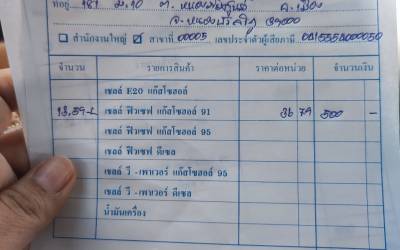 ที่อยู่ 181 ม.10 ต. หนองบัว อ.เมือง
จ.หนองบัวลำภู 39000
สำนักงานใหญ่ ✓ สาขาที่ 00005 เลขประจำตัวผู้เสียภาษี
จำนวน รายการสินค้า ราคาต่อหน่วย จำนวนเงิน
เชลล์ E20 แก๊สโซฮอล์
13.59 L เชลล์ ฟิวเซฟ แก๊สโซฮอล์ 91 36 79 500 -
เชลล์ ฟิวเซฟ แก๊สโซฮอล์ 95
เชลล์ ฟิวเซฟ ดีเซล
เชลล์ วี -เพาเวอร์ แก๊สโซฮอล์ 95
เชลล์ วี -เพาเวอร์ ดีเซล
น้ำมันเครื่อง